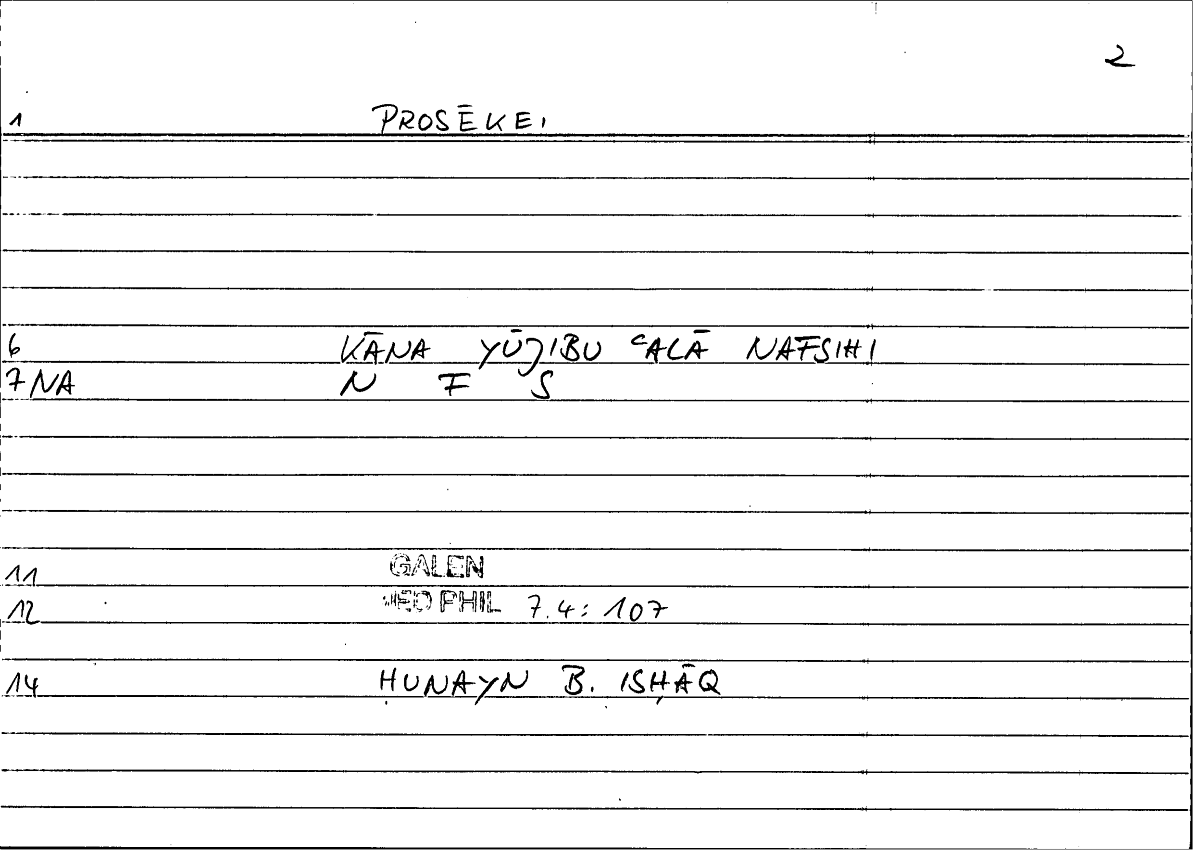 2
1 PROSĒKEI
6 KĀNA YŪJIBU ʿALĀ NAFSIHI
7 NA N F S
11 GALEN
12 MED PHIL 7.4: 107
14 ḤUNAYN B. ISḤĀQ